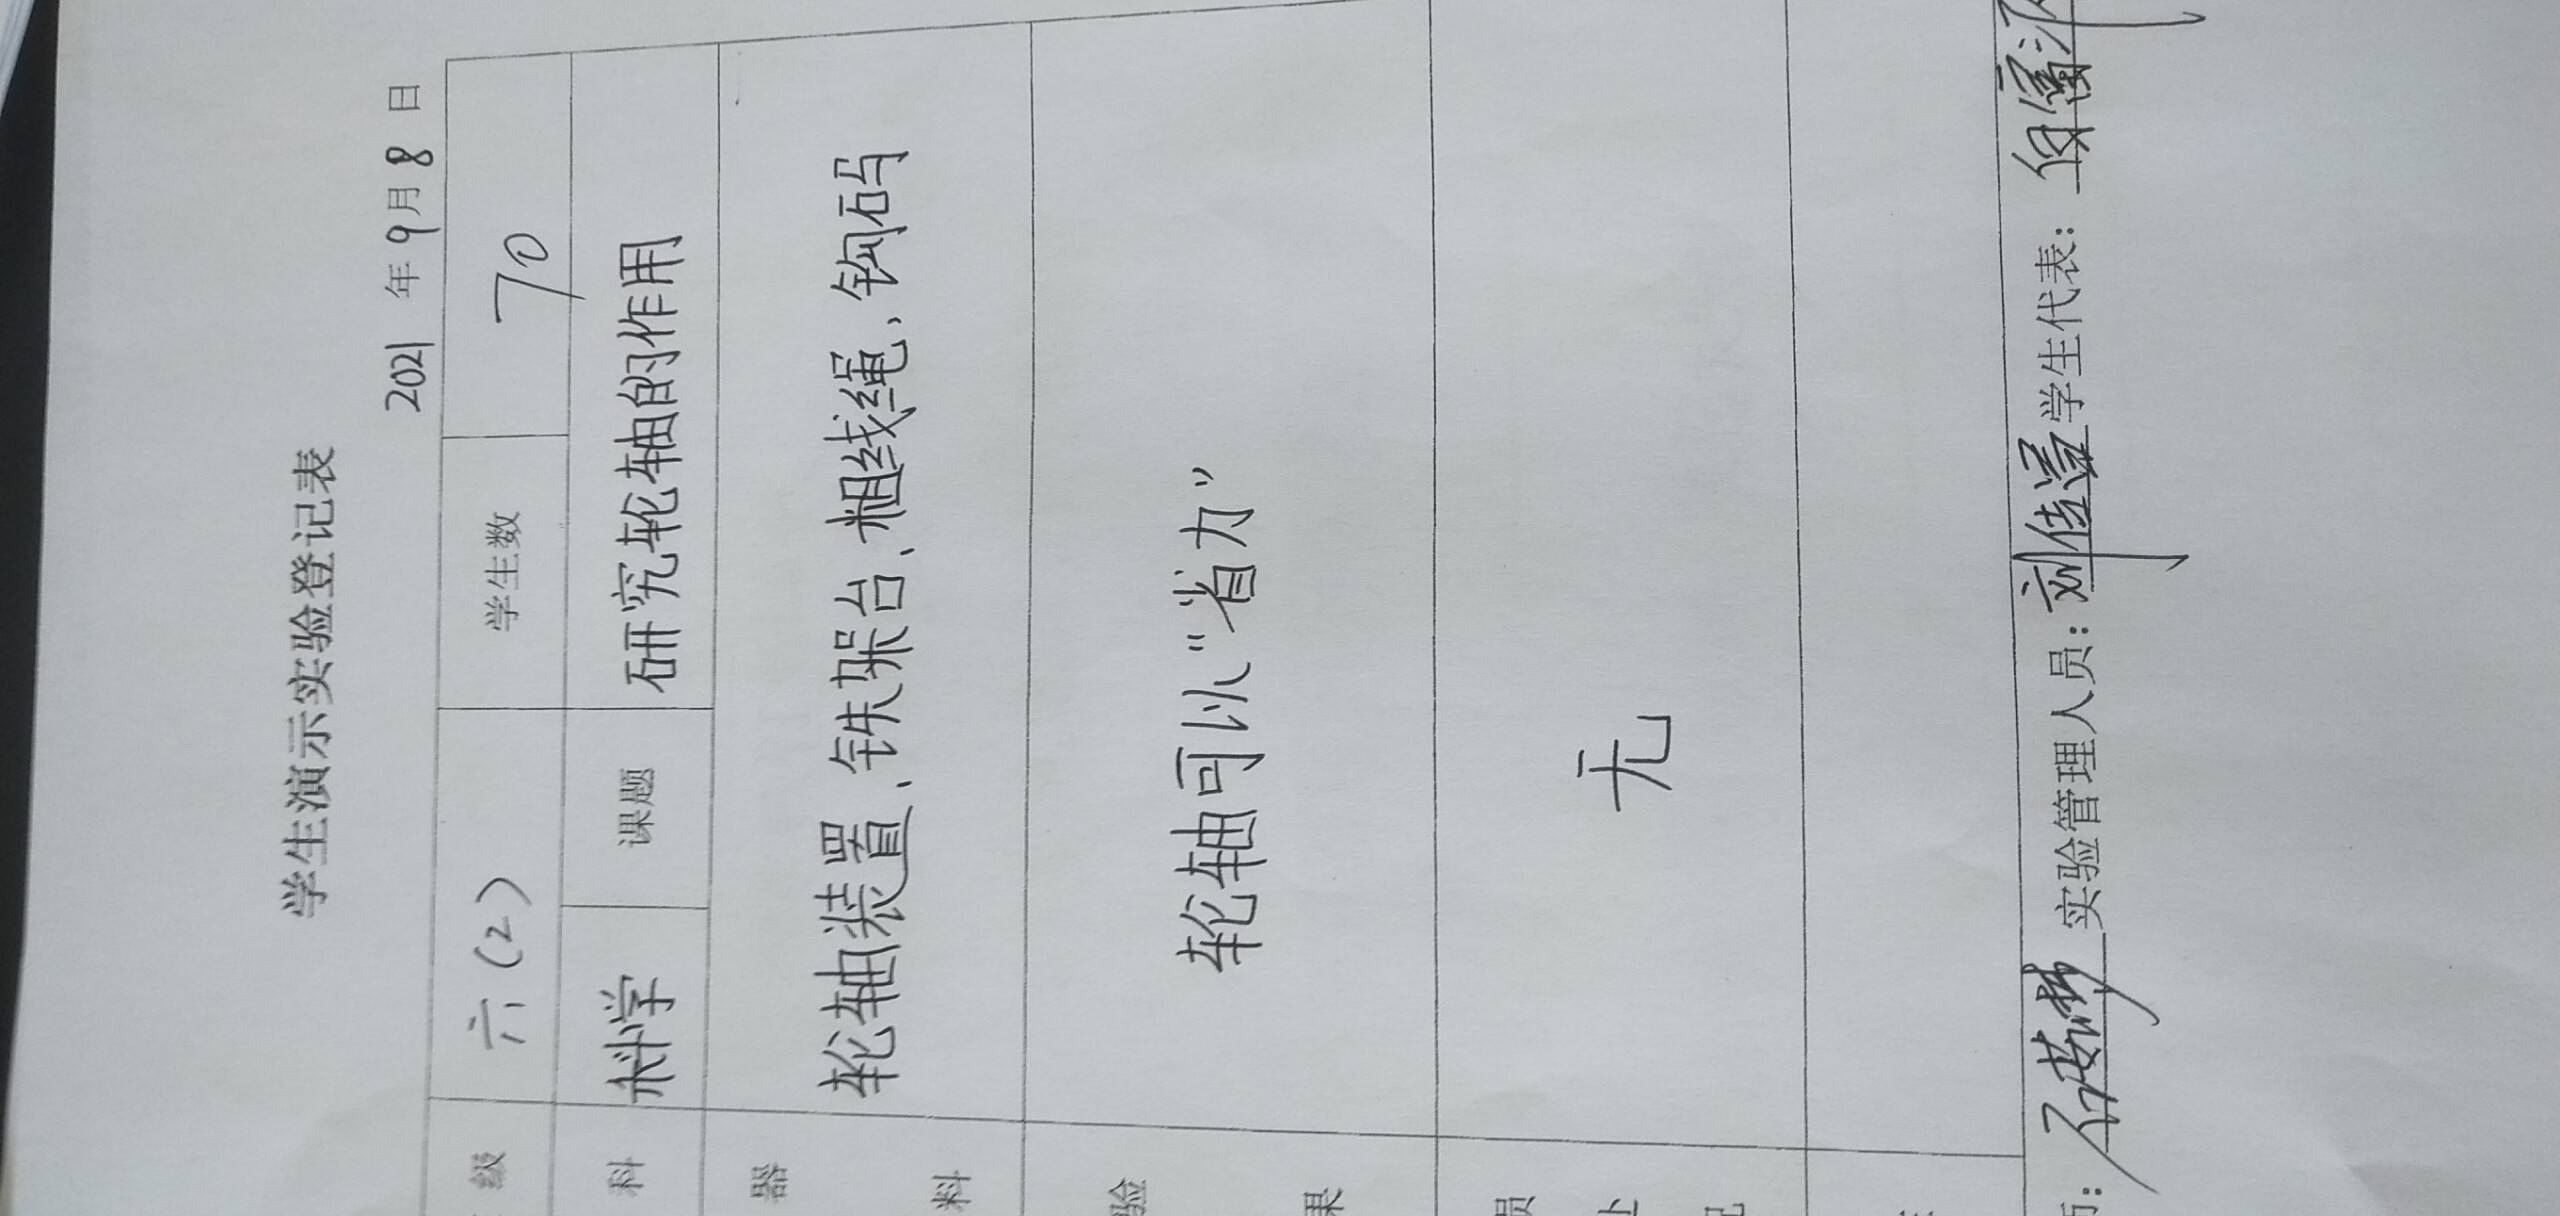 学生演示实验登记表
2021 年 9 月 8 日
级 六(2) 学生数 70
科 科学 课题 研究轮轴的作用
器 料 轮轴装置、铁架台、粗线绳、钩码
验 果 轮轴可以“省力”
员 无
实验管理人员: 学生代表: